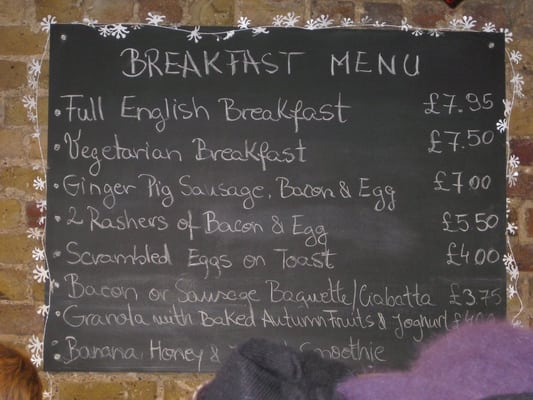 BREAKFAST MENU
• Full English Breakfast £7.95
• Vegetarian Breakfast £7.50
• Ginger Pig Sausage, Bacon & Egg £7.00
• 2 Rashers of Bacon & Egg £5.50
• Scrambled Eggs on Toast £4.00
• Bacon or Sausage Baguette/Ciabatta £3.75
• Granola with Baked Autumn Fruits & Joghurt
• Banana, Honey & Smoothie